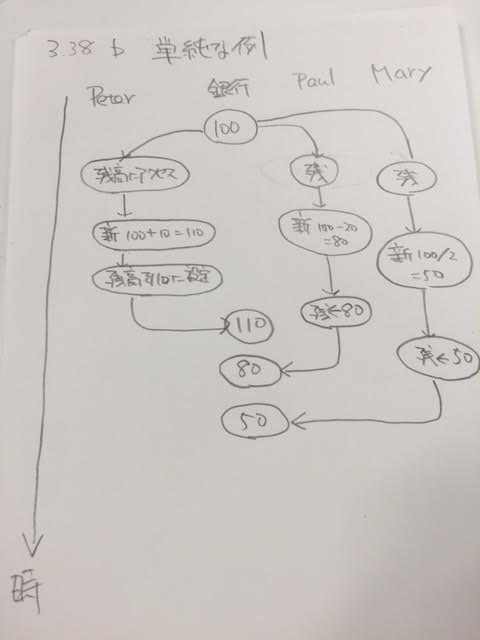 3.38 b 単純な例
Peter 銀行 Paul Mary
100
残高にアクセス
残
残
新 100+10=110
新 100-20
=80
新 100/2
=50
残高を110に設定
残←80
110
残←50
80
50
時